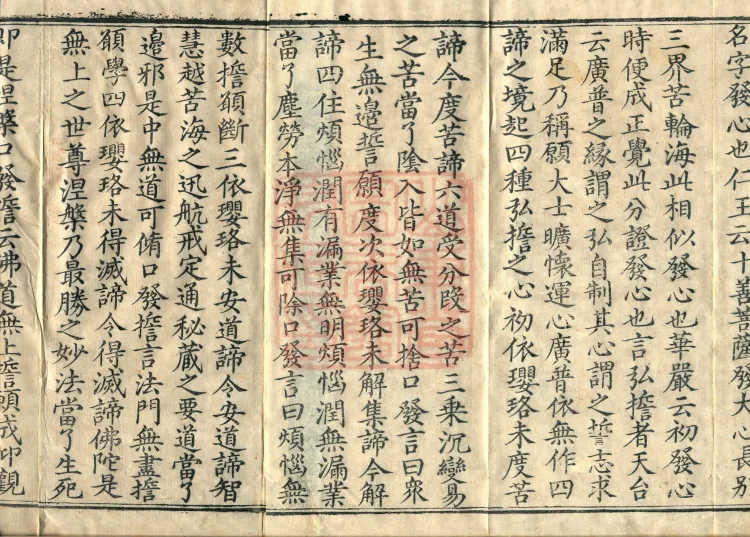 名字發心也仁王云十善菩薩發大心長別
三界苦輪海此相似發心也華嚴云初發心
時便成正覺此分證發心也言弘擔者天台
云廣普之緣謂之弘自制其心謂之誓志求
滿足乃稱願大士曠懷運心廣普依無作四
諦之境起四種弘擔之心初依瓔珞未度苦
諦今度苦諦六道受分段之苦三乘沉變易
之苦當了陰入皆如無苦可捨口發言曰眾
生無邊誓願度次依瓔珞未解集諦今解
諦四住煩惱潤有漏業無明煩惱潤無漏業
當了塵勞本淨無集可除口發言曰煩惱無
數擔願斷三依瓔珞未安道諦令安道諦智
慧越苦海之迅航戒定通秘藏之要道當了
邊邪是中無道可脩口發擔言法門無盡擔
願學四依瓔珞未得滅諦令得滅諦佛陀是
無上之世尊涅槃乃最勝之妙法當了生死
即是涅槃口發擔云佛道無上擔願成仰觀